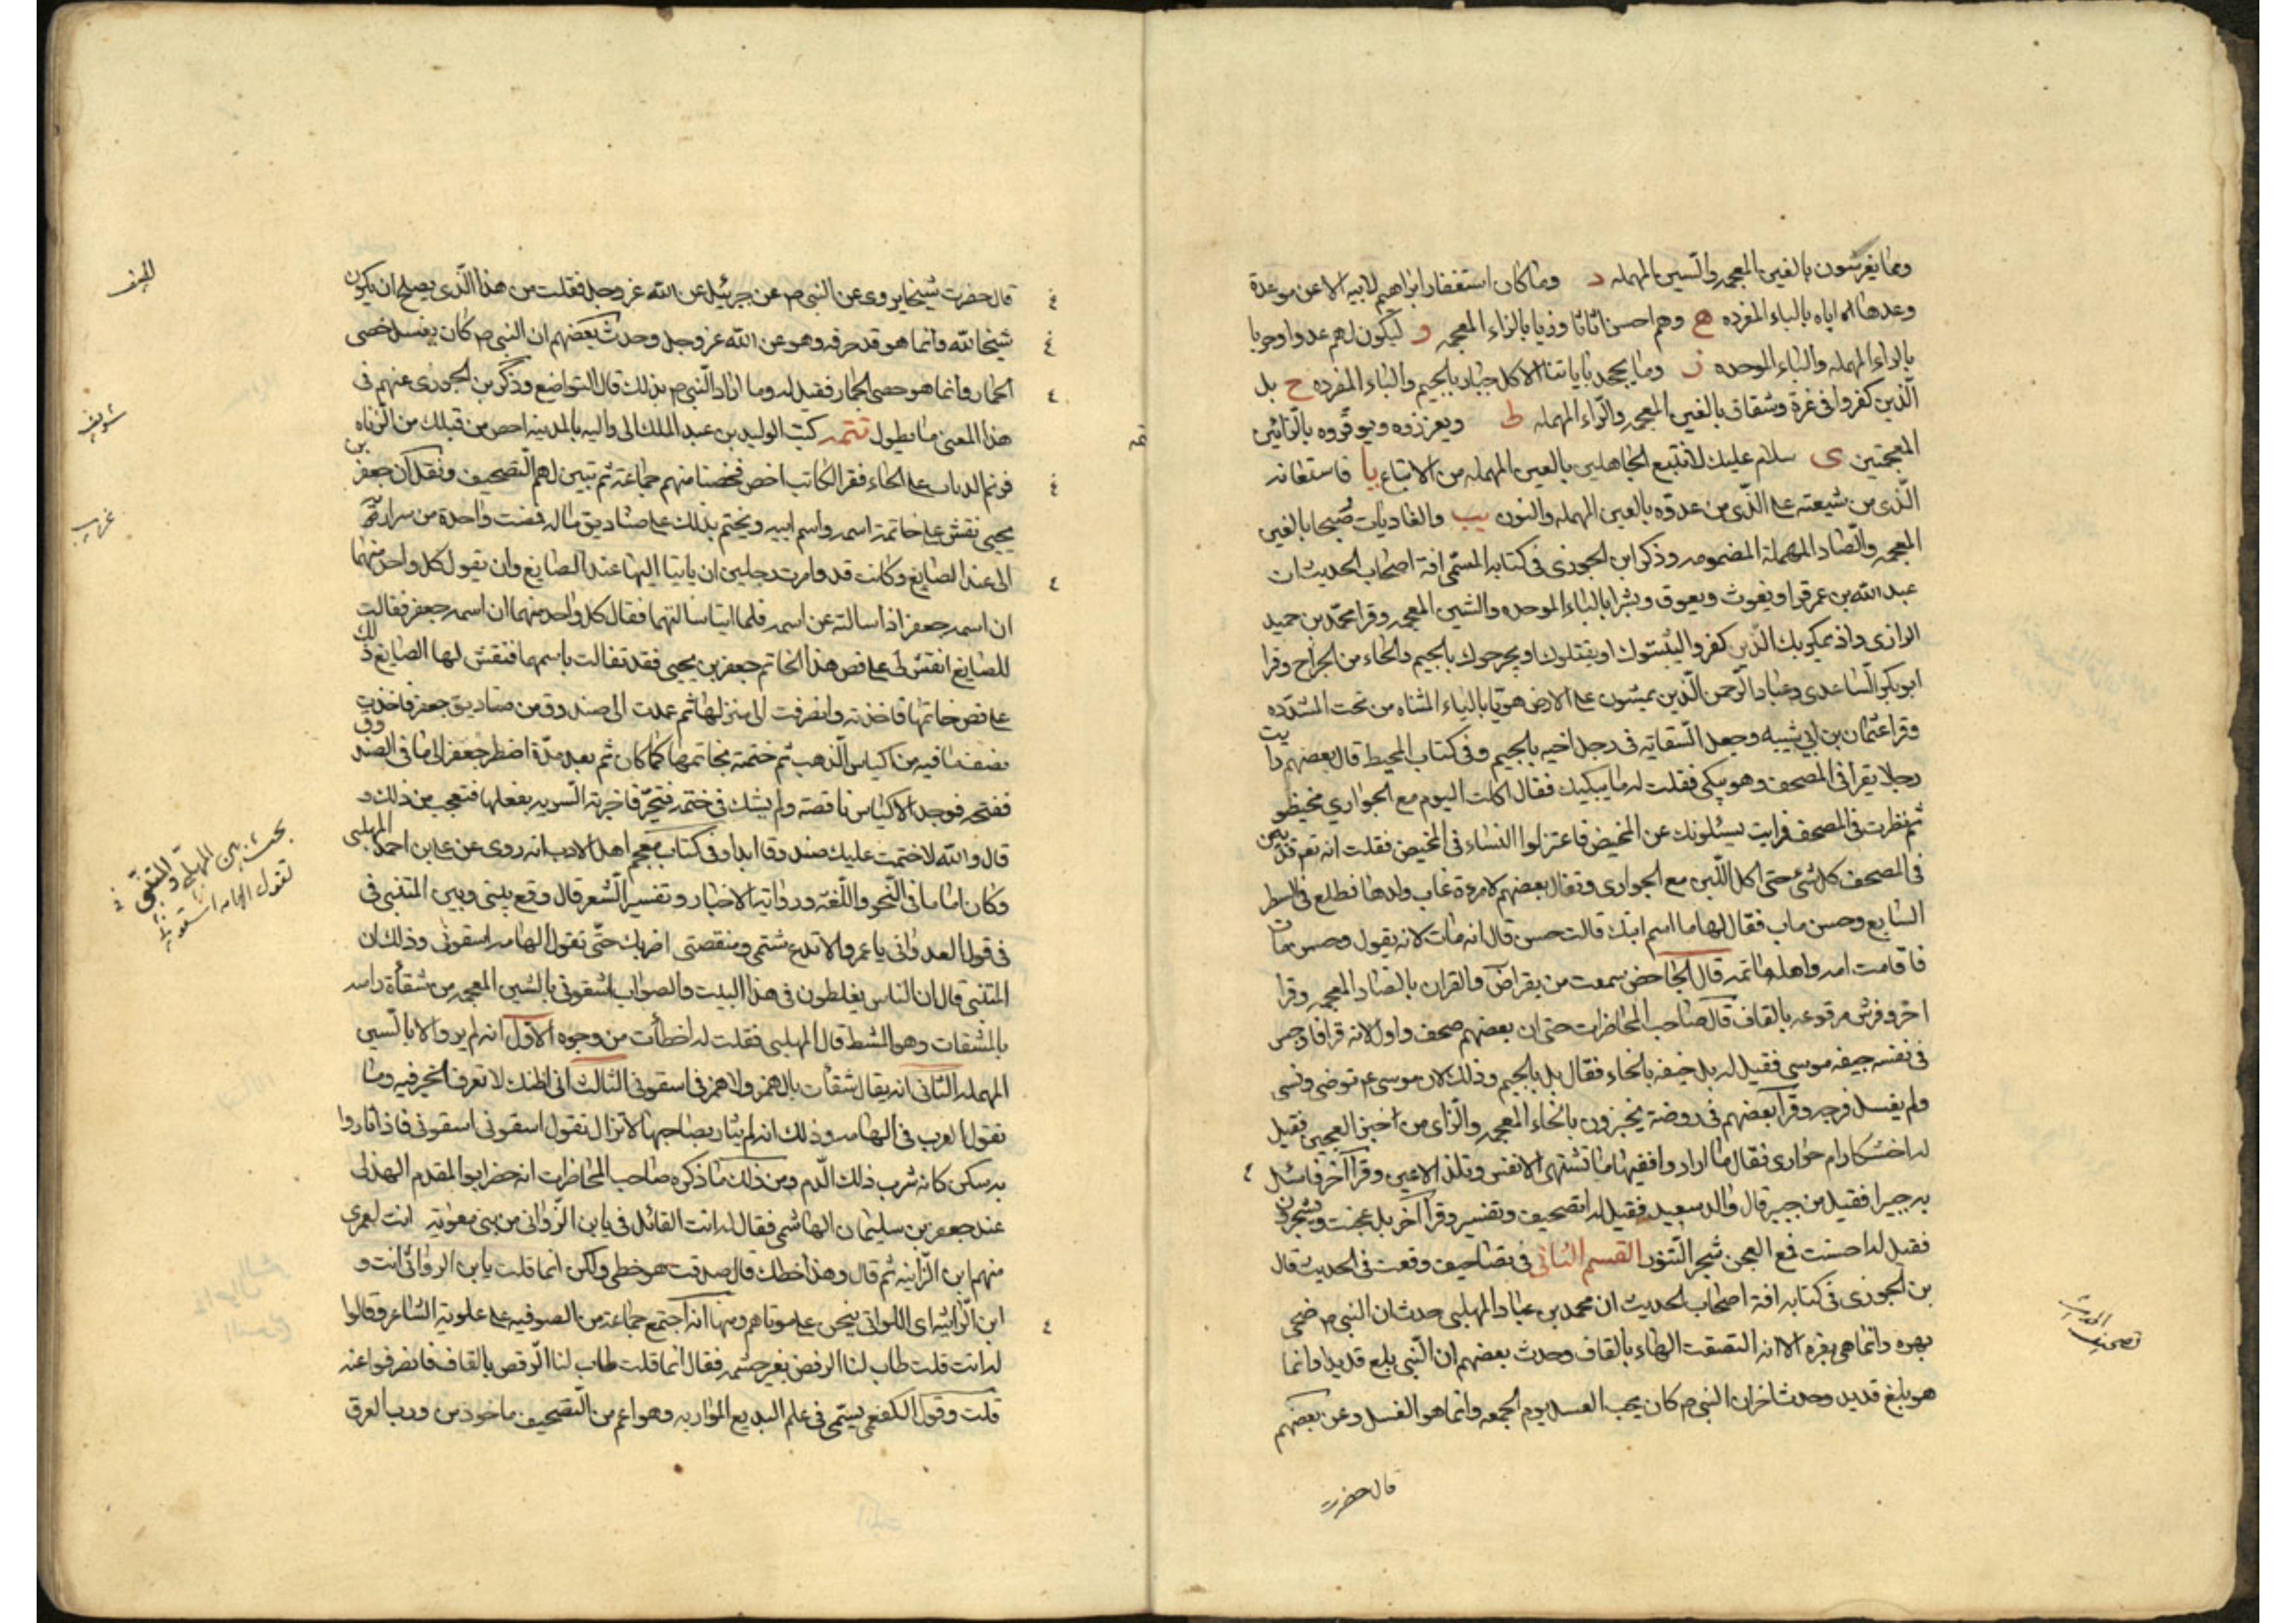 ومما يغرسون بالغين المعجمه والسين المهمله د وما كان استغفار ابراهيم لابيه الا عن موعدة
وعدها اباه بالباء المفرده ه وهم احسن اثاثا وزيا بالزاء المعجمه و ليكون لهم عدوا وحربا
بالراء المهمله والباء الموحده ز وما يجحد باياتنا الا كل جبار بالجيم والباء المفرده ح بل
الذين كفروا فى غرة وشقاق بالغين المعجمه والراء المهمله ط ويعززوه ويوقروه بالزائين
المعجمتين ى سلام عليك لا نتبع الجاهلين بالعين المهمله من الاتباع يا فاستعانه
الذى من شيعته على الذى من عدوه بالعين المهمله والنون يب والغاديات صبحا بالغين
المعجمه والصاد المهملة المضمومه وذكر ابن الجوزى فى كتابه المسمى افة اصحاب الحديث ان
عبد الله بن عمر قرا ويغوث ويعوق وبشرا بالباء الموحده والشين المعجمه وقرا محمد بن حميد
الرازى واذ يمكر بك الذين كفروا ليثبتوك او يقتلوك او يجرحوك بالجيم والحاء من الجراح وقرا
ابو بكر الساعدى وعباد الرحمن الذين يمشون على الارض هويا بالياء المثناه من تحت المشدده
وقرا عثمان بن ابى شيبه وجعل السقايه فى رجل اخيه بالجيم وفى كتاب المحيط قال بعضهم رايت
رجلا يقرا فى المصحف وهو يبكى فقلت له ما يبكيك فقال اكلت اليوم مع الجوارى مخيظو
ثم نظرت فى المصحف فرايت يسئلونك عن المخيض فاعتزلوا النساء فى المخيض فقلت انه تعم قد بين
فى المصحف كل شئ حتى اكل اللبن مع الجوارى وتفال بعضهم لامرءة غاب ولدها فطلع فى السطر
السابع وحسن ماب فقال لها ما اسم ابنك قالت حسن قال انه مات لانه يقول وحسن مات
فاقامت امه واهله ماتمه قال الجاحض سمعت من يقرا ض والقران بالضاد المعجمه وقرا
اخر وفرش مرقوعه بالقاف قال صاحب المحاظرات حتى ان بعضهم صحف واول لانه قرا فاوجس
فى نفسه جيفه موسى فقيل له بل خيفه بالخاء فقال بل بالجيم وذلك لان موسى ع توضى ونسى
ولم يغسل فرجه وقرا بعضهم فى روضة يخبزون بالخاء المعجمه والزاى من اخبز العجين فقيل
له اخشكارام حوارى فقال ما اراد وافقيها ما تشتهى الانفس وتلذ الاعين وقرا آخر فاسئل
به جبيرا فقيل من جبير قال والد سعيد فقيل له اتصحيف وتفسير وقرا آخر بل عجنت ويشجرون
فقيل له احسنت فمع العجن شجر التنور القسم الثانى فى تصاحيف وقعت فى الحديث قال
بن الجوزى فى كتابه افة اصحاب الحديث ان محمد بن عباد المهلبى حدث ان النبى ص ضحى
بهره وانما هى بقره الا انه التصقت الهاء بالقاف وحدث بعضهم ان النبى بلع قديدا وانما
هو بلغ قديد وحدث اخر ان النبى ص كان يحب العسل يوم الجمعه وانما هو الغسل وعن بعضهم
قال حضرت
تصحيف الحديث
قال حضرت شيخا يروى عن النبى ص عن جبرئيل عن الله عز وجل فقلت من هذا الذى يصلح ان يكون
شيخا لله وانما هو قد حرفه وهو عن الله عز وجل وحدث بعضهم ان النبى ص كان يغسل خصى
الحمار وانما هو حصى الجمار فقيل له وما اراد النبى ص بذلك قال التواضع وذكر بن الجوزى عنهم فى
هذا المعنى ما يطول تتمه كتب الوليد بن عبد الملك الى واليه بالمدينه احص من قبلك من الزناه
فوثم الذباب على الحاء فقرا الكاتب اخص فخصنا منهم جماعة ثم تبين لهم التصحيف ونقل ان جعفر بن
يحيى نقش على خاتمه اسمه واسم ابيه ويختم بذلك على صناديق ماله فمضت واحدة من سراريه
الى عند الصايغ وكانت قد وامرت رجلين ان ياتيا اليها عند الصايغ وان يقول كل واحد منهما
ان اسمه جعفر اذا سالته عن اسمه فلما اتيا سالتهما فقال كل واحد منهما ان اسمه جعفر فقالت
للصايغ انقش لى على فص هذا الخاتم جعفر بن يحيى فقد تفالت باسمهما فنقش لها الصايغ ذلك
على فص خاتمها فاخذته وانصرفت الى منزلها ثم عمدت الى صندوق من صناديق جعفر فاخذت
نصف ما فيه من اكياس الذهب ثم ختمته بخاتمها كما كان ثم بعد مدة اضطر جعفر الى ما فى الصندوق
ففتحه فوجد الاكياس ناقصة ولم يشك فى ختمه فتحير فاخبرته السريه بفعلها فتعجب من ذلك و
قال والله لا ختمت عليك صندوقا ابدا وفى كتاب معجم اهل الادب انه روى عن على بن احمد المهلبى
وكان اماما فى النحو واللغة ورواية الاخبار وتفسير الشعر قال وقع بينى وبين المتنبى فى
فى قول العدوانى يا عمرو الا تدع شتمى ومنقصتى اضربك حتى تقول الهامه اسقونى وذلك ان
المتنبى قال ان الناس يغلطون فى هذا البيت والصواب اشقونى بالشين المعجمه من شقأة راسه
بالمشقات وهو المشط قال المهلبى فقلت له اخطأت من وجوه الاول انه لم يرو الا بالسين
المهمله الثانى انه يقال شقأت بالهمز ولا همز فى اسقونى الثالث انى اظنك لا تعرف الخبر فيه وما
تقول العرب فى الهامه وذلك انه لم يثار بصاحبها لا تزال تقول اسقونى اسقونى فاذا ثاروا
به سكن كانه شرب ذلك الدم ومن ذلك ما ذكره صاحب المحاظرات انه حضر ابو المقدم الهذلى
عند جعفر بن سليمان الهاشمى فقال له انت القائل فى يا بن الزوانى من بنى معوية انت لعمرى
منهم ابن الزانيه ثم قال وهذا خطك قال صدقت هو خطى ولكن انما قلت يا بن الرواثى انت و
ابن الراثيه اى اللواتى ينحن على موتاهم ومنها انه اجتمع جماعة من الصوفيه على علوية الشاعر وقالوا
له انت قلت طاب لنا الرفض بغير حشمه فقال انما قلت طاب لنا الرقص بالقاف فانصرفوا عنه
قلت وقول الكفعمى يسمى فى علم البديع المواربه وهو اعم من التصحيف ماخوذ من ورب العرق
غريب
بحث بين المهلبى والمتنبى